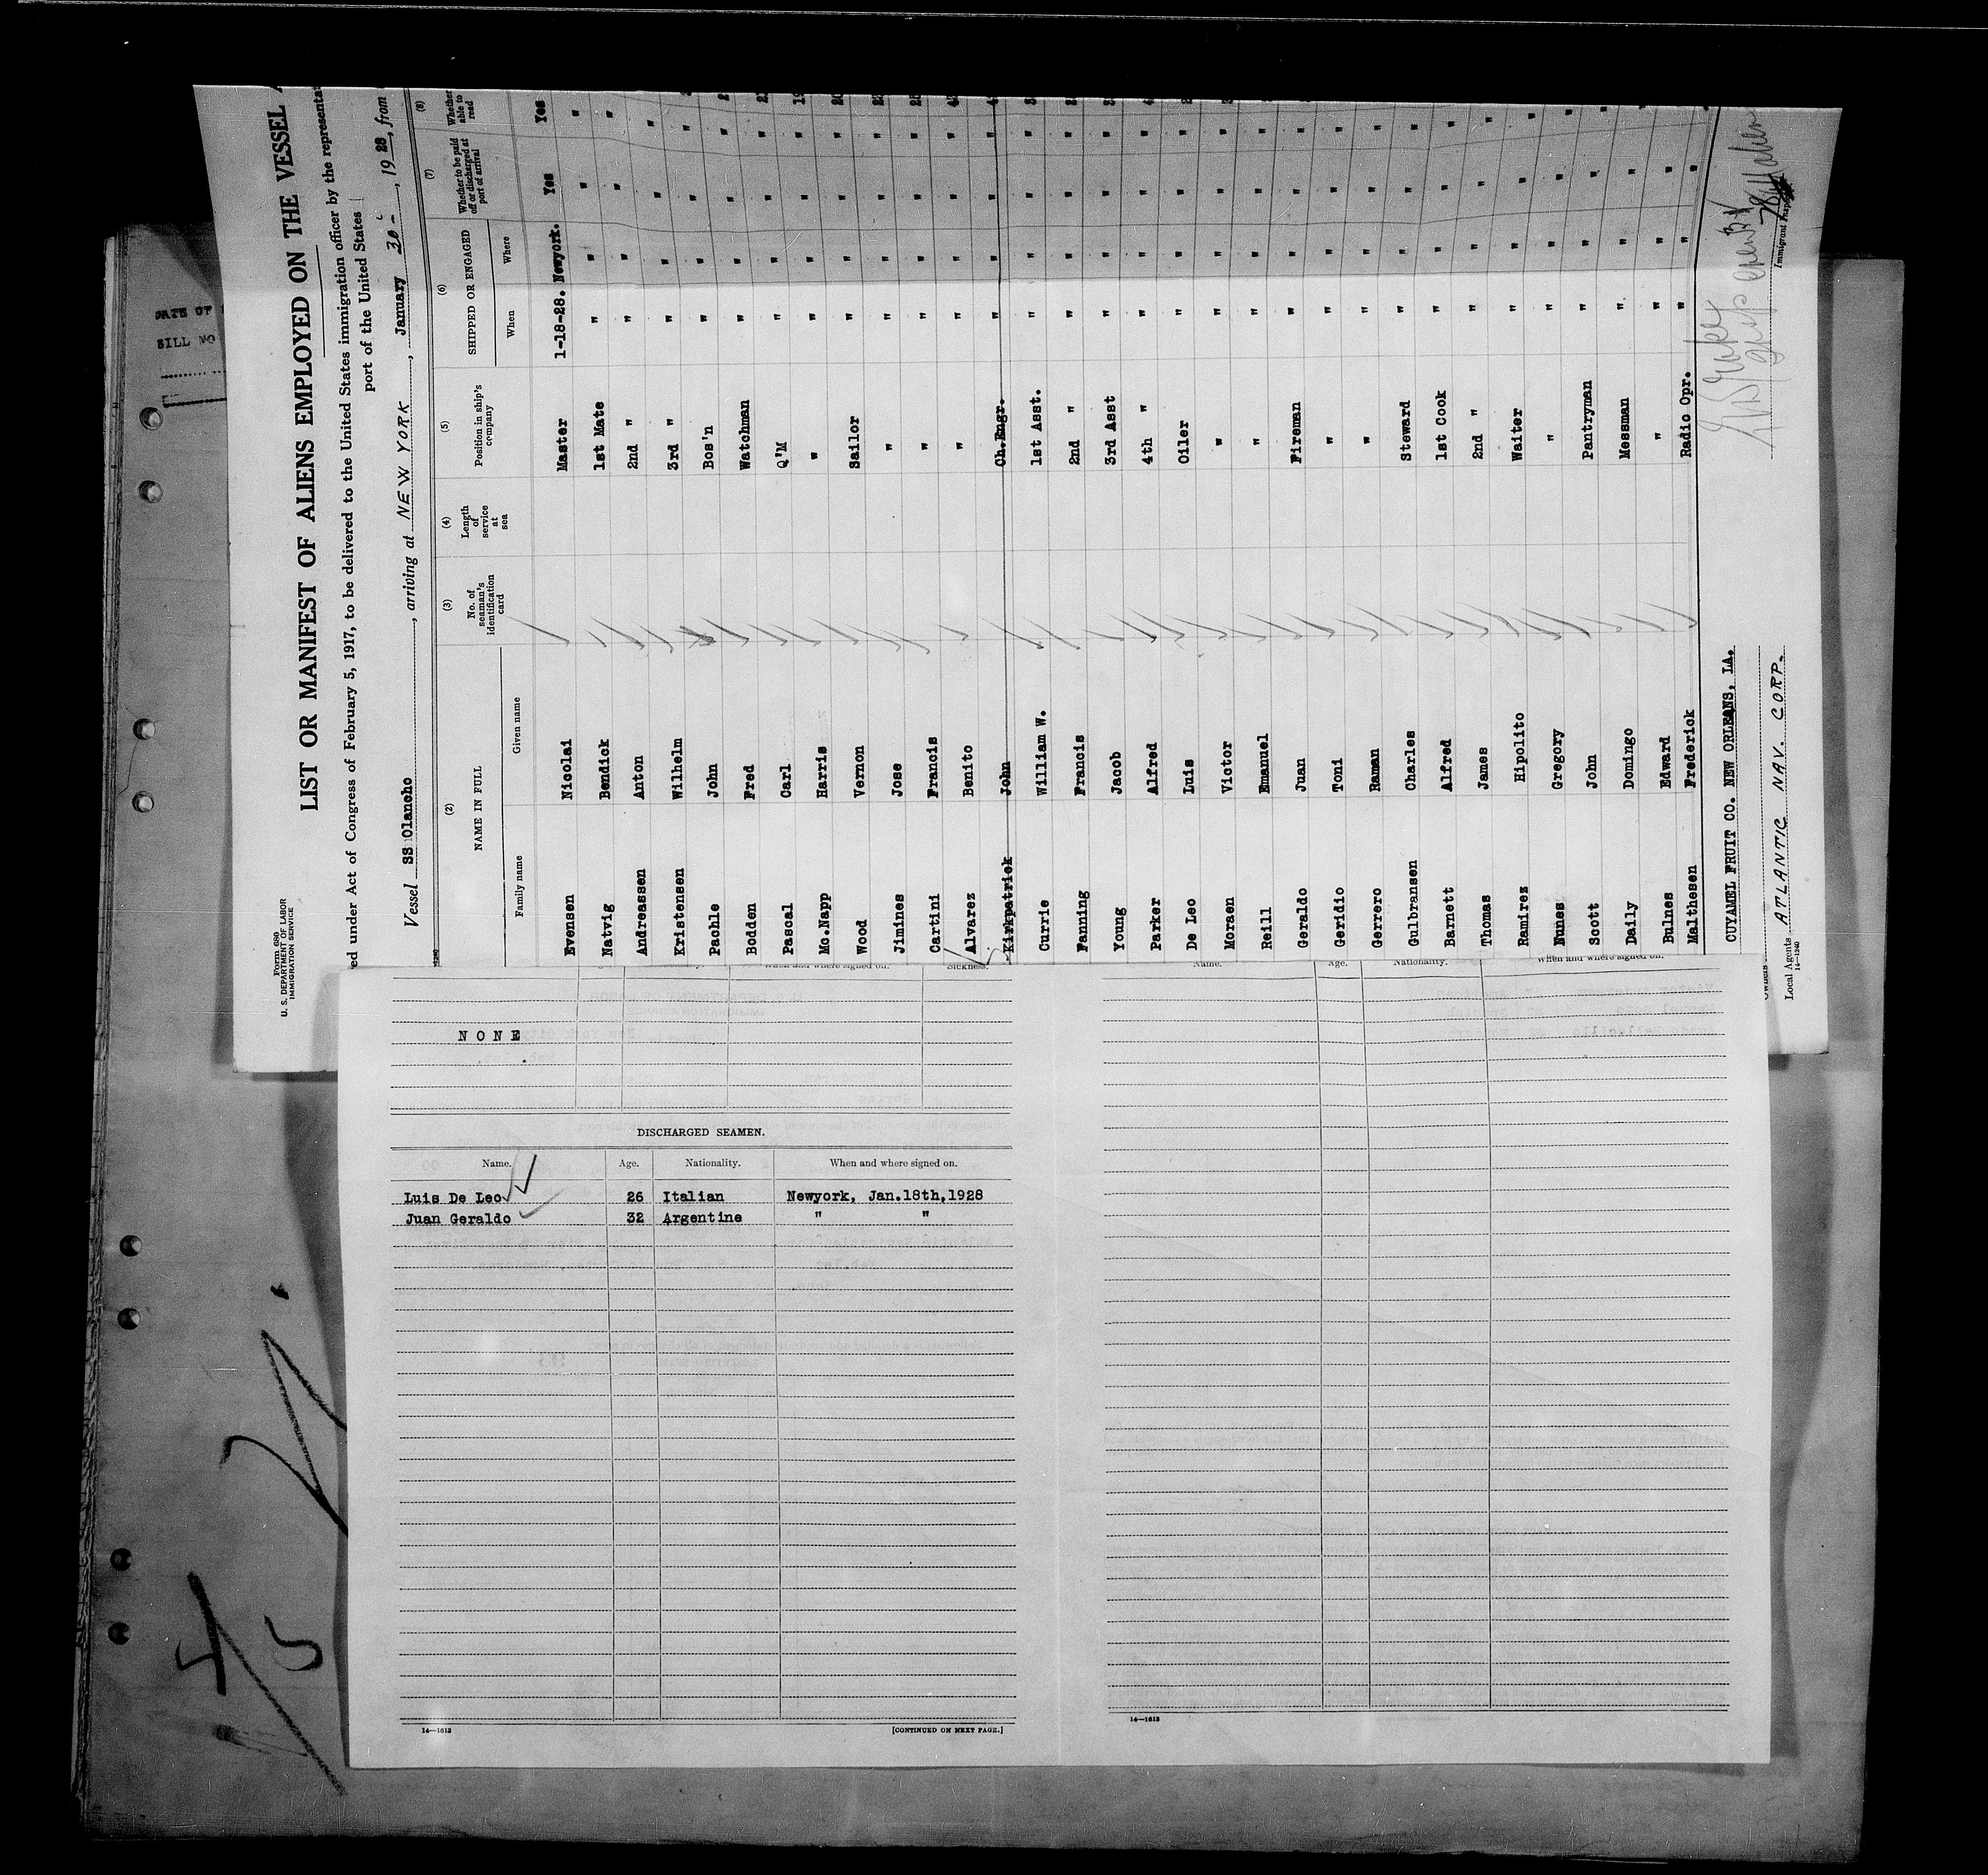 Form 680
U. S. DEPARTMENT OF LABOR
IMMIGRATION SERVICE
LIST OR MANIFEST OF ALIENS EMPLOYED ON THE VESSEL
ed under Act of Congress of February 5, 1917, to be delivered to the United States immigration officer by the representa
port of the United States
Vessel SS Olancho, arriving at NEW YORK, January 30, 1928, from
(2) (3) (4) (5) (6) (7) (8)
NAME IN FULL No. of seaman's identification card Length of service at sea Position in ship's company SHIPPED OR ENGAGED Whether to be paid off or discharged at port of arrival Whether able to read
Family name Given name When Where
Evensen Nicolai Master 1-18-28. Newyork. Yes Yes
Natvig Bendick 1st Mate " " " "
Andreassen Anton 2nd " " " " "
Kristensen Wilhelm 3rd " " " " "
Paohle John Bos'n " " " "
Bodden Fred Watchman " " " "
Pascal Carl Q'M " " " "
Mc.Napp Harris " " " " "
Wood Vernon Sailor " " " "
Jimines Jose " " " " "
Cartini Francis " " " " "
Alvarez Benito " " " " "
Kirkpatrick John Ch.Engr. " " " "
Currie William W. 1st Asst. " " " "
Fanning Francis 2nd " " " " "
Young Jacob 3rd Asst " " " "
Parker Alfred 4th " " " " "
De Leo Luis Oiler " " " "
Moraen Victor " " " " "
Reill Emanuel " " " " "
Geraldo Juan Fireman " " " "
Geridio Toni " " " " "
Gerrero Raman " " " " "
Gulbransen Charles Steward " " " "
Barnett Alfred 1st Cook " " " "
Thomas James 2nd " " " " "
Ramirez Hipolito Waiter " " " "
Nunes Gregory " " " " "
Scott John Pantryman " " " "
Daily Domingo Messman " " " "
Bulnes Edward " " " " "
Malthesen Frederick Radio Opr. " " " "
CUYAMEL FRUIT CO. NEW ORLEANS, LA.
Owners
Local Agents ATLANTIC NAV. CORP.
14-1240
DATE OF
BILL NO
When and where signed on. Sickness.
NONE
DISCHARGED SEAMEN.
Name. Age. Nationality. When and where signed on.
Luis De Leo 26 Italian Newyork, Jan.18th,1928
Juan Geraldo 32 Argentine " "
14—1613 [CONTINUED ON NEXT PAGE.]
Name. Age. Nationality. When and where signed on.
14—1613